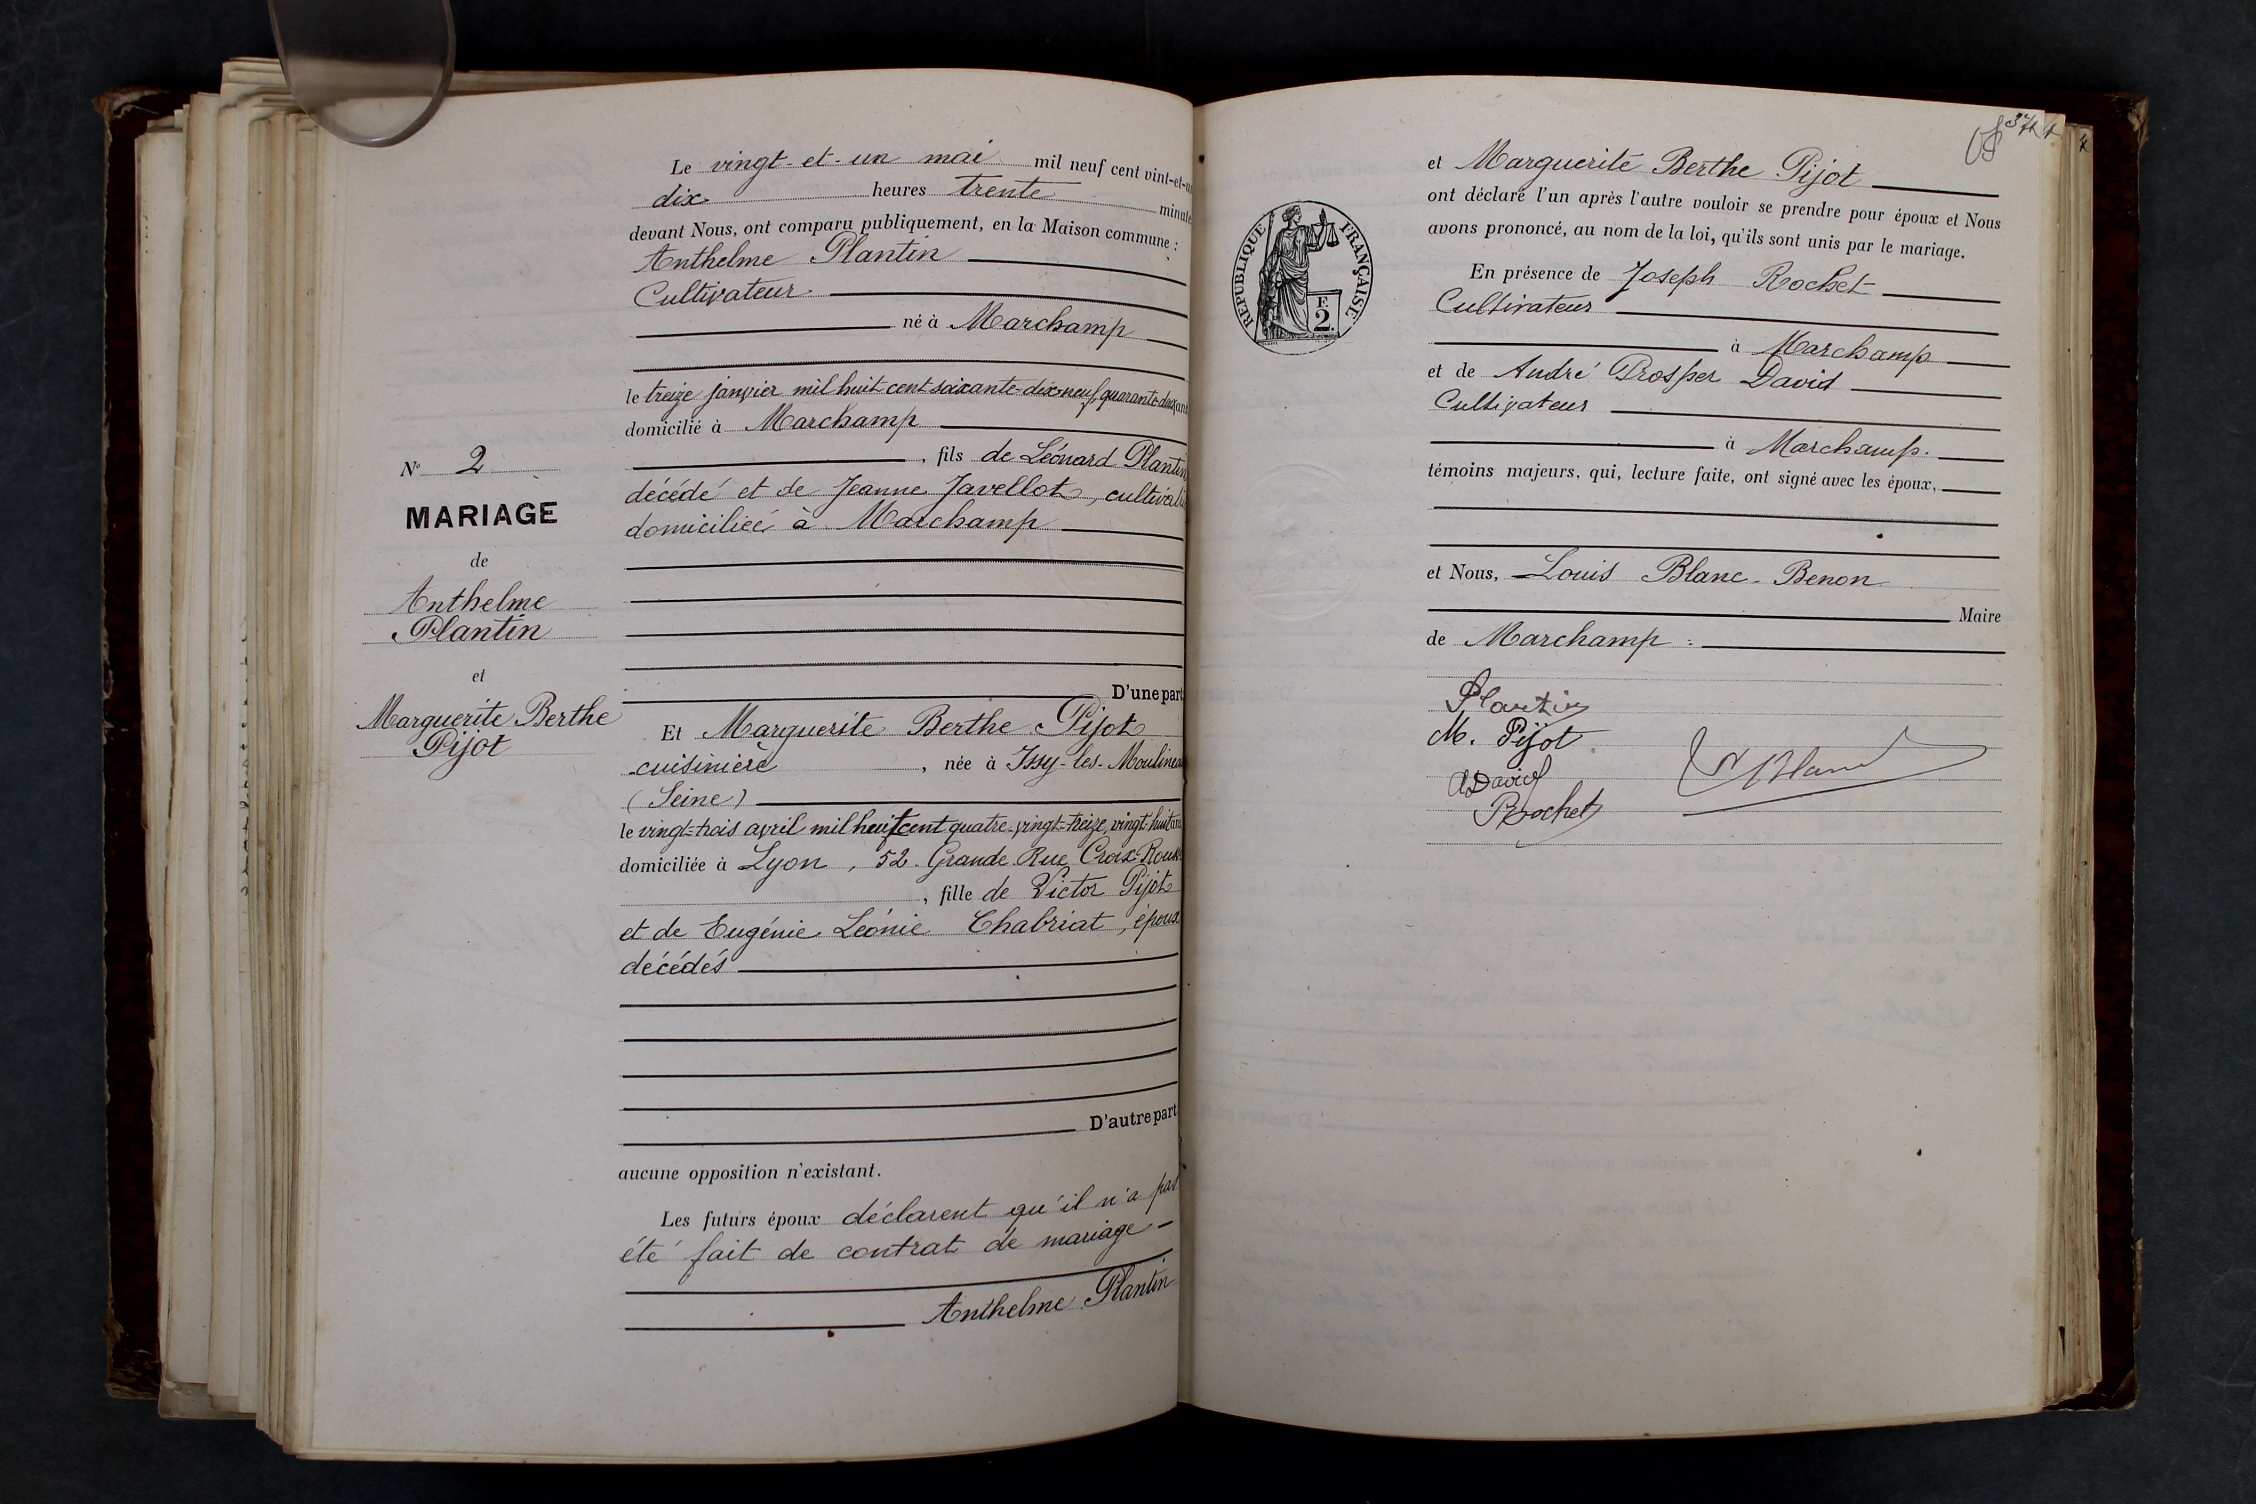 Le vingt-et-un mai mil neuf cent vint-et-u
dix heures trente minute
devant Nous, ont comparu publiquement, en la Maison commune :
Anthelme Plantin
Cultivateur
né à Marchamp
le treize janvier mil huit cent soixante-dix-neuf, quarante-deux ans
domicilié à Marchamp
, fils de Léonard Plantin
décédé et de Jeanne Javellot, cultivat
domiciliée à Marchamp
D'une part
N° 2
MARIAGE
de
Anthelme
Plantin
et
Marguerite Berthe
Pijot
Et Marguerite Berthe Pijot
cuisinière, née à Issy-les-Moulinea
(Seine)
le vingt-trois avril mil huit cent quatre-vingt-treize, vingt-huit ans
domiciliée à Lyon, 52 Grande Rue Croix-Rouss
, fille de Victor Pijot
et de Eugénie Léonie Chabriat, époux
décédés
D'autre part
aucune opposition n'existant.
Les futurs époux déclarent qu'il n'a pas
été fait de contrat de mariage
Anthelme Plantin
et Marguerite Berthe Pijot
ont déclaré l'un après l'autre vouloir se prendre pour époux et Nous
avons prononcé, au nom de la loi, qu'ils sont unis par le mariage.
RÉPUBLIQUE FRANÇAISE
F.
2.
En présence de Joseph Rochet
Cultivateur
à Marchamp
et de André Prosper David
Cultivateur
à Marchamp.
témoins majeurs, qui, lecture faite, ont signé avec les époux,
et Nous, Louis Blanc-Benon
Maire
de Marchamp :
Plantin
M. Pijot
A David
Rochet
Blanc